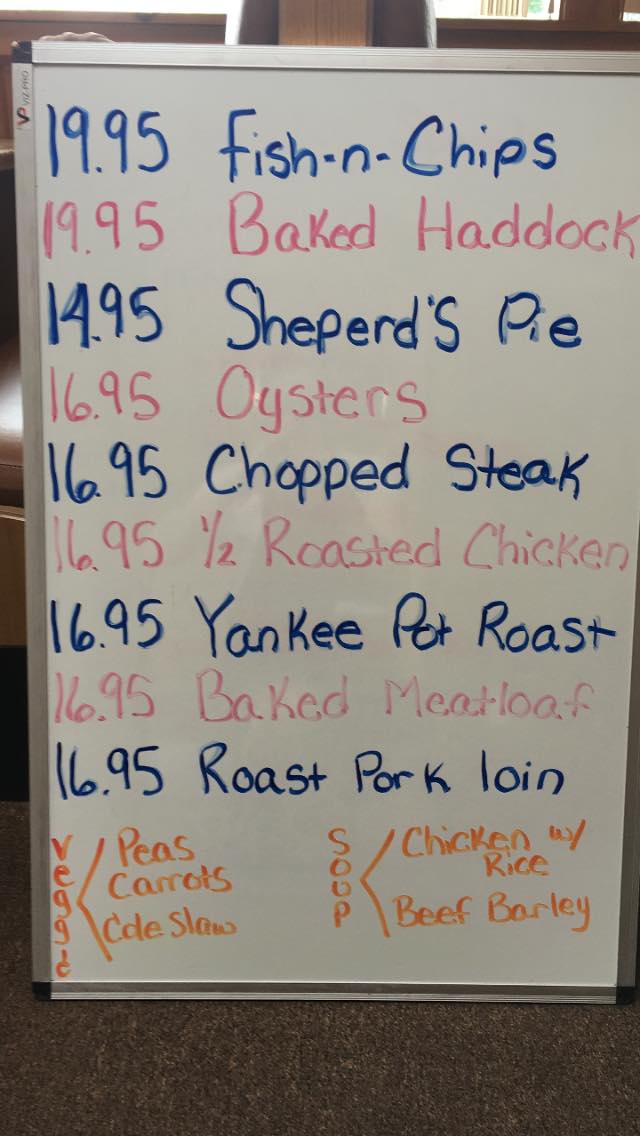 VIZ-PRO
19.95 Fish-n-Chips
19.95 Baked Haddock
14.95 Sheperd's Pie
16.95 Oysters
16.95 Chopped Steak
16.95 1/2 Roasted Chicken
16.95 Yankee Pot Roast
16.95 Baked Meatloaf
16.95 Roast Pork loin
Veggie
Peas
Carrots
Cole Slaw
SOUP
Chicken w/
Rice
Beef Barley